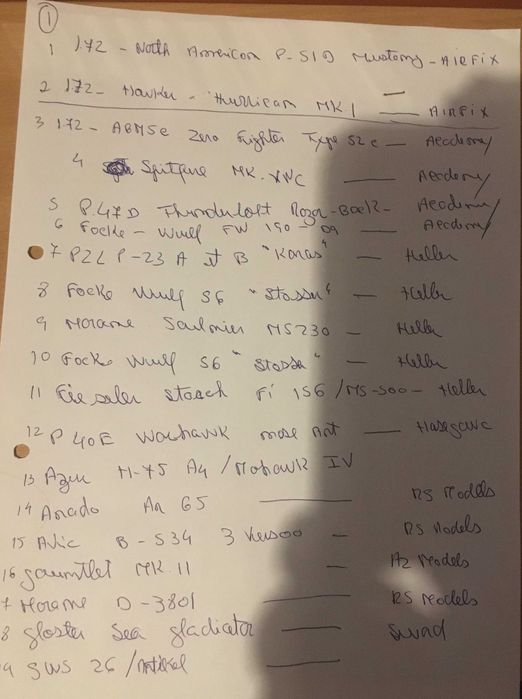 1
1 1.72 - North American P-51D Mustang - AIRFIX
2 1.72 - Hawker - Hurrican MK I — AIRFIX
3 1.72 - A6M5c Zero Fighter Type 52c — Academy
4 Spitfire MK. XIVC — Academy
5 P.47D Thunderbolt Razor-Back - Academy
6 Focke - Wulf FW 190 - D9 — Academy
7 PZL P-23 A et B "Karas" — Heller
8 Focke Wulf 56 "Stosser" — Heller
9 Morane Saulnier MS230 — Heller
10 Focke Wulf 56 "Stosse" — Heller
11 Fieseler Storch Fi 156 / MS-500 - Heller
12 P 40E Warhawk nose Art — Hasegawa
13 Azur H-75 A4 / Mohawk IV
14 Arado Ar 65 — RS Models
15 Avic B - 534 3 — RS Models
16 gauntlet MK. 11 — AZ Models
7 Morane D - 3801 — RS Models
8 gloster Sea gladiator — Swad
9 SWS 26 /